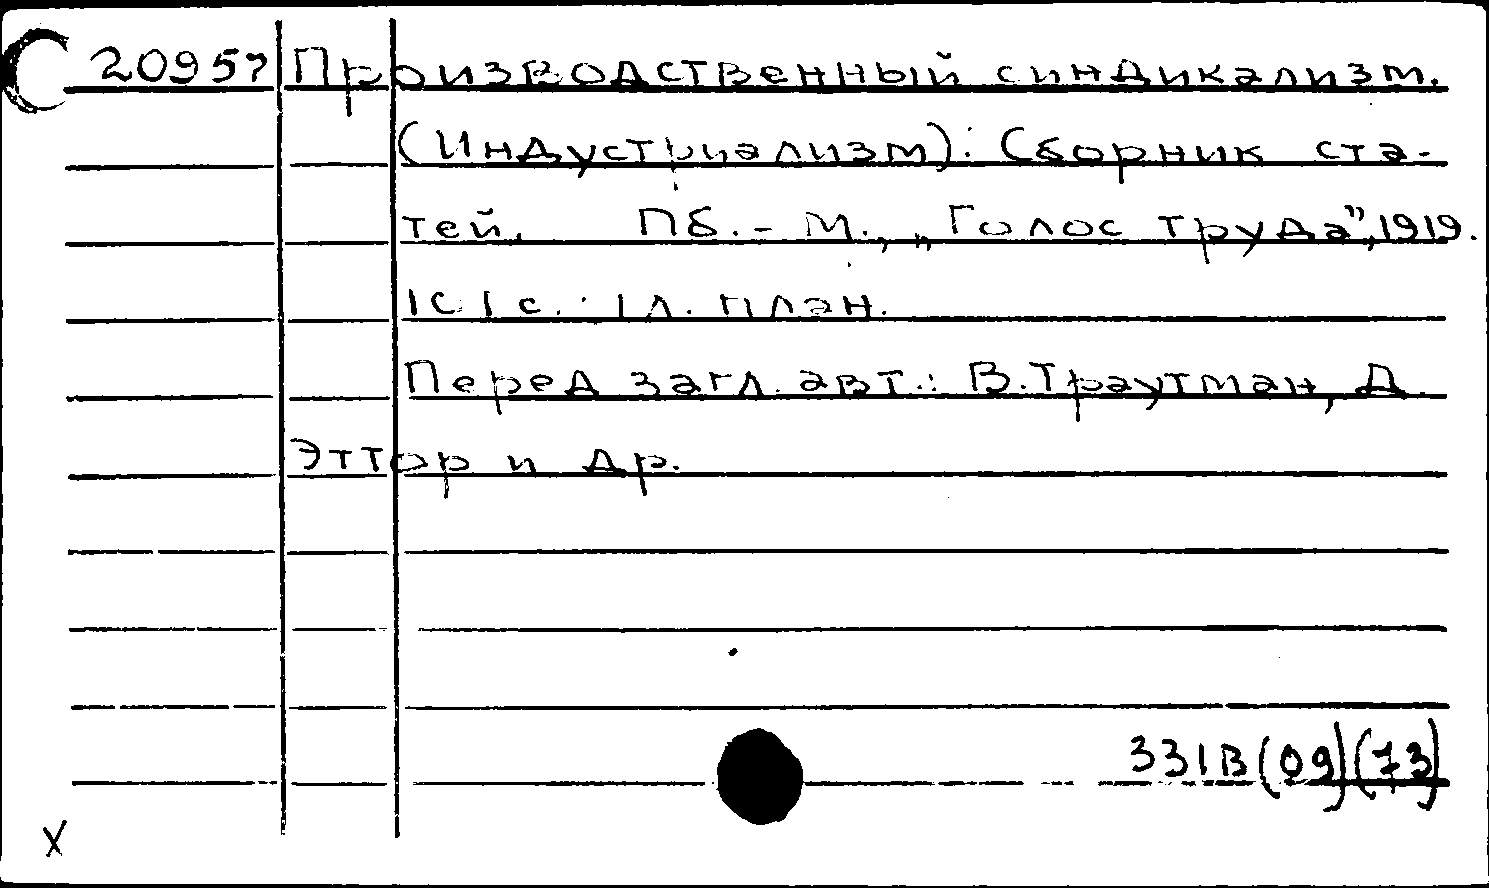 20957 Производственный синдикализм.
(Индустриализм): Сборник ста-
тей. Пб.-М., „Голос труда", 1919.
101 с. 1 л. план.
Перед загл. авт.: В. Траутман, Д.
Эттор и др.
331В(09)(73)
X